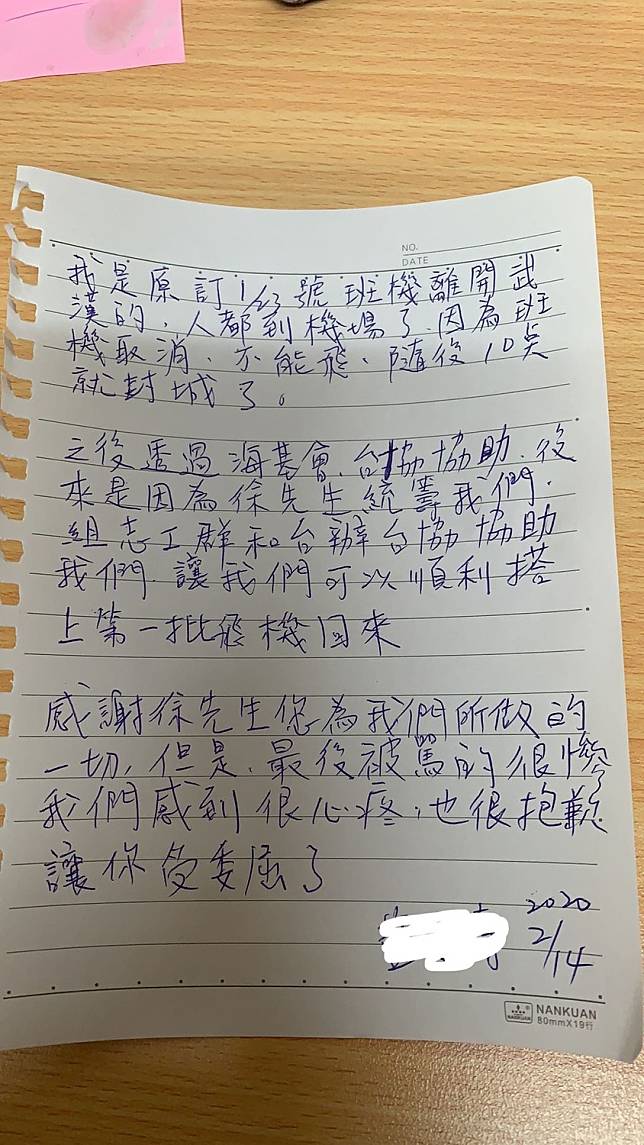 NO.
DATE
我是原訂1/23號班機離開武
漢的、人都到機場了、因為班
機取消、不能飛、隨後10点
就封城了。
之後透過海基會、台協協助、後
來是因為徐先生統籌我們、
組志工群和台辦台協協助
我們、讓我們可以順利搭
上第一批飛機回來
感謝徐先生您為我們所做的
一切,但是、最後被罵的很慘
我們感到很心疼,也很抱歉
讓你受委屈了
2020
2/14
NANKUAN
NANKUAN
80mmX19行